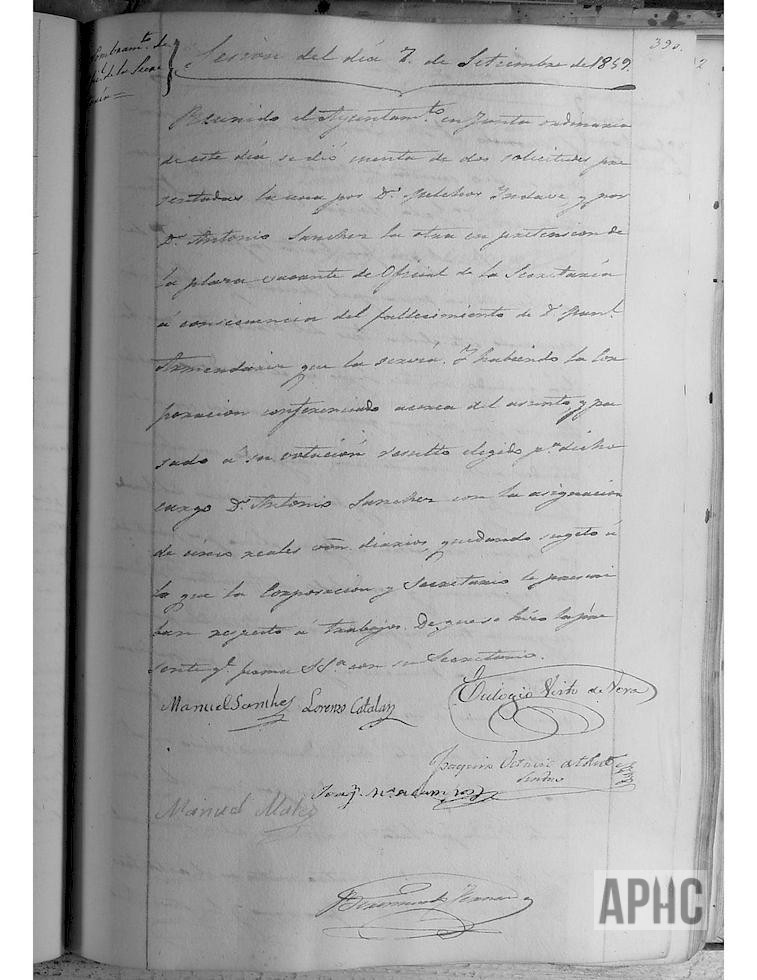 Nombramto. de
ofil. de la Secre
taría =
Sesión del día 7. de Setiembre de 1859.
390.
2
Reunido el Ayuntamto. en Junta ordinaria
de este día se dió cuenta de dos solicitudes pre
sentadas la una por Dn. Melchor Indave y por
Dn. Antonio Sanchez la otra en pretension de
la plaza vacante de Oficial de la Secretaría
á consecuencia del fallecimiento de Dn. Juan
Armendariz que la servía. Y habiendo la Cor
poracion conferenciado acerca del asunto, y pa
sado á su votación resultó elegido pa. dicho
cargo Dn. Antonio Sanchez con la asignacion
de cinco reales vón. diarios, quedando sugeto á
lo que la Corporacion y Secretario le prescri
ban respecto á trabajos. De que se hizo la pre
sente qe. firma S.Sa. con su Secretario.
Manuel Sanchez Lorenzo Catalan
Eulogio Virto de Vera
Joaquin Octavio de Toledo
Manuel Mateo
APHC